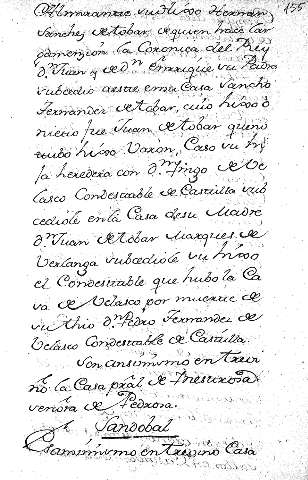 155
Almirante su hixo Hernan
Sanchez de tobar, de quien hace lar
ga mencion la Coronica del Rey
Dn Juan y de Dn Enrrique su Padre
subcedio a este en su Casa Sancho
Fernandez de tobar, cuio hixo o
nieto fue Juan de tobar que no
tubo hixo Varon, Caso su hixa
heredera con Dn Iñigo de Ve
lasco Condestable de Castilla sub
cediole en la Casa de su Madre
Dn Juan de tobar Marques de
Verlanga subcediole su hixo
el Condestable que hubo la Ca
sa de Velasco por muerte de
su thio Dn Pedro Fernandez de
Velasco Condestable de Castilla.
Son ansimismo en trevi
ño la Casa pral de
señora de Pedrosa.
Sandobal
ansimismo en trevino Casa